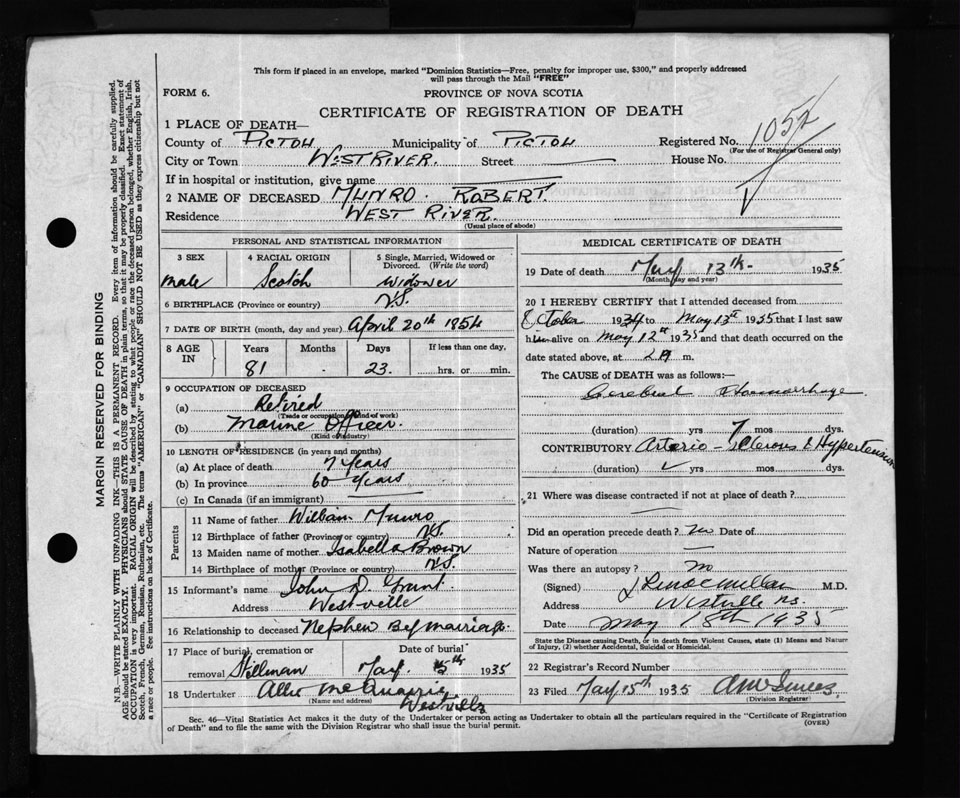 This form if placed in an envelope, marked "Dominion Statistics—Free, penalty for improper use, $300," and properly addressed
will pass through the Mail "FREE"
FORM 6.
PROVINCE OF NOVA SCOTIA
CERTIFICATE OF REGISTRATION OF DEATH
1 PLACE OF DEATH—
County of PICTOU Municipality of PICTOU Registered No. 1052
(For use of Registrar General only)
City or Town WEST RIVER. Street House No.
If in hospital or institution, give name
2 NAME OF DECEASED MUNRO. ROBERT.
Residence WEST RIVER.
(Usual place of abode)
PERSONAL AND STATISTICAL INFORMATION
3 SEX
4 RACIAL ORIGIN
5 Single, Married, Widowed or
Divorced. (Write the word)
male Scotch Widower
6 BIRTHPLACE (Province or country) N.S.
7 DATE OF BIRTH (month, day and year) April 20th 1854
8 AGE
IN
Years Months Days If less than one day,
81 - 23. hrs. or min.
9 OCCUPATION OF DECEASED
(a) Retired
(Trade or occupation, kind of work)
(b) Marine Officer.
(Kind of industry)
10 LENGTH OF RESIDENCE (in years and months)
(a) At place of death 7 years
(b) In province 60 years
(c) In Canada (if an immigrant)
Parents
11 Name of father William Munro
12 Birthplace of father (Province or country) N.S.
13 Maiden name of mother Isabella Brown
14 Birthplace of mother (Province or country) N.S.
15 Informant's name John D. Grant.
Address Westville
16 Relationship to deceased Nephew By marriage.
17 Place of burial, cremation or Date of burial
removal Stillman May 15th 1935
18 Undertaker
(Name and address)
Westville
MEDICAL CERTIFICATE OF DEATH
19 Date of death May 13th 1935
(Month, day and year)
20 I HEREBY CERTIFY that I attended deceased from
October 1934 to May 13th 1935 that I last saw
him alive on May 12th 1935 and that death occurred on the
date stated above, at 2 A m.
The CAUSE of DEATH was as follows:—
Cerebral Hemorrhage
(duration) yrs 7 mos dys.
CONTRIBUTORY Arterio-Sclerosis & Hypertension
(duration) yrs mos dys.
21 Where was disease contracted if not at place of death?
Did an operation precede death? No Date of
Nature of operation —
Was there an autopsy? No
(Signed) M.D.
Address Westville N.S.
Date May 18th 1935
State the Disease causing Death, or in death from Violent Causes, state (1) Means and Nature
of Injury, (2) whether Accidental, Suicidal or Homicidal.
22 Registrar's Record Number
23 Filed May 15th 1935
(Division Registrar)
Sec. 46—Vital Statistics Act makes it the duty of the Undertaker or person acting as Undertaker to obtain all the particulars required in the "Certificate of Registration
of Death" and to file the same with the Division Registrar who shall issue the burial permit.
(OVER)
MARGIN RESERVED FOR BINDING
N.B.—WRITE PLAINLY WITH UNFADING INK—THIS IS A PERMANENT RECORD. Every item of information should be carefully supplied.
AGE should be stated EXACTLY. PHYSICIANS should STATE CAUSE OF DEATH in plain terms, so that it may be properly classified. Exact statement of
OCCUPATION is very important. RACIAL ORIGIN will be described by stating to what people or race the deceased person belonged, whether English, Irish,
Scotch, French, German, Russian, Ruthenian, etc. The terms "AMERICAN" or "CANADIAN" SHOULD NOT BE USED as they express citizenship but not
a race or people. See instructions on back of Certificate.